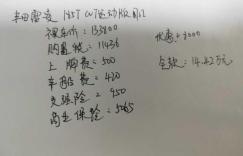 丰田雷凌 185T CVT运动版 国Ⅵ
裸车价 = 133800
购置税 = 11436
上牌费 = 500
车船税 = 420
交强险 = 950
商业保险 = 5065
优惠 = 8000
全款: 14.42万元